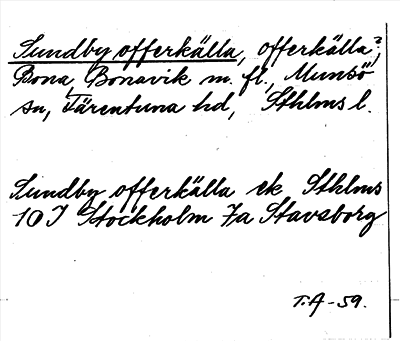 Sundby offerkälla, offerkälla?;
Bona, Bonavik m. fl., Munsö
sn, Färentuna hd, Sthlms l.
Sundby offerkälla ek Sthlms
10I Stockholm 7a Stavsborg
T.A-59.